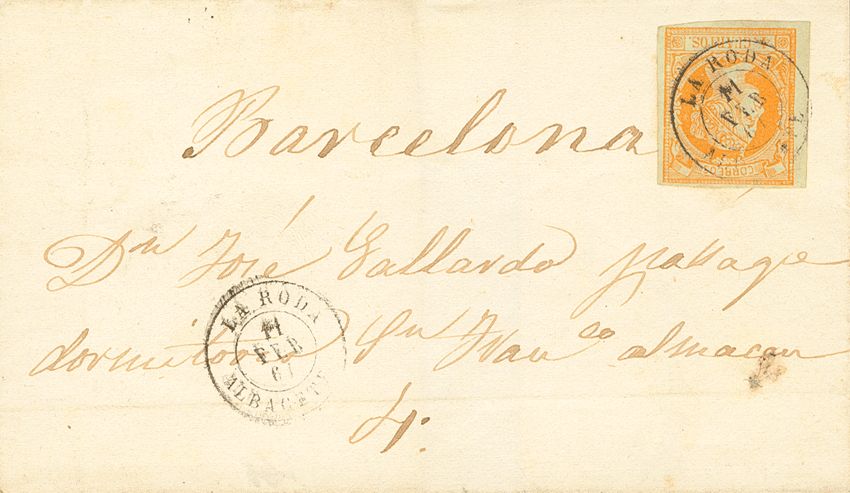 CUARTOS
CORREOS
LA RODA
11
FEB
Barcelona
Dn José Gallardo passage
dormitorio Sn Franco almacen
4.
LA RODA
11
FEB
61
ALBACETE